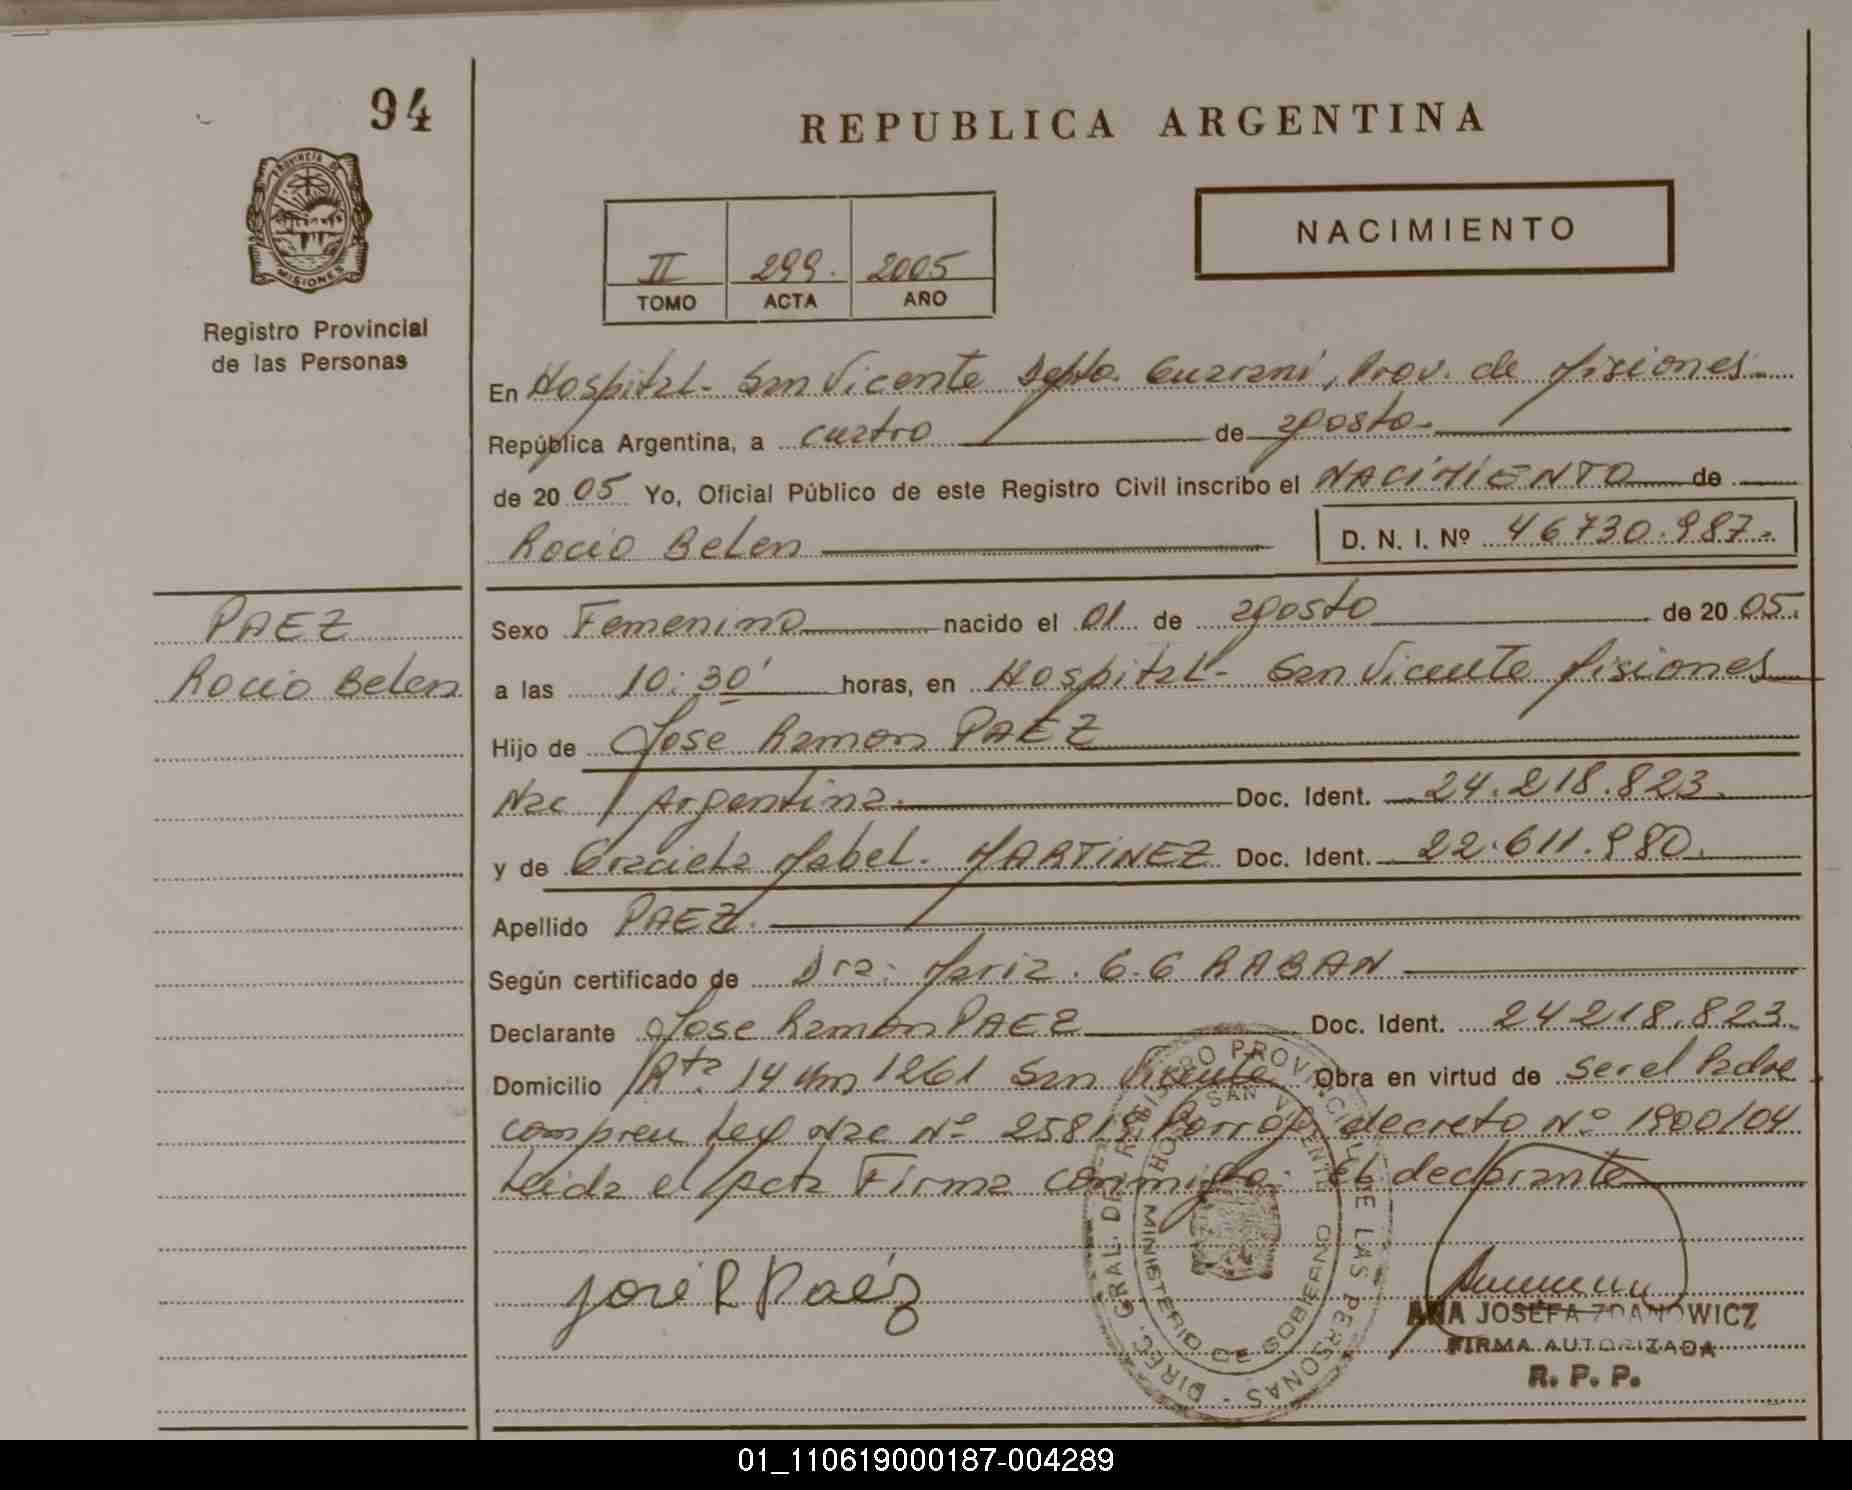 94
REPUBLICA ARGENTINA
PROVINCIA DE
MISIONES
Registro Provincial
de las Personas
NACIMIENTO
II 299. 2005
TOMO ACTA AÑO
En Hospital - San Vicente Depto. Guarani, Prov. de Misiones.
República Argentina, a cuatro de agosto.
de 20 05 Yo, Oficial Público de este Registro Civil inscribo el NACIMIENTO de
Rocio Belen
D. N. I. Nº 46730.987.
PAEZ
Rocio Belen
Sexo Femenino nacido el 01 de agosto de 20 05.
a las 10:30' horas, en Hospital - San Vicente Misiones
Hijo de Jose Ramon PAEZ
Nac Argentina. Doc. Ident. 24.218.823.
y de Graciela Mabel. MARTINEZ Doc. Ident. 22.611.980.
Apellido PAEZ.
Según certificado de Dra: Maria. G. G RABAN
Declarante Jose Ramon PAEZ Doc. Ident. 24218.823.
Domicilio Rta. 14 Km 1261 San Vicente Obra en virtud de ser el Padre
Nac Nº 25818 decreto Nº 1900/04
Leida el Acta Firma conmigo. El declarante
José R Paéz
DIREC. GRAL. DEL REGISTRO PROVINCIAL DE LAS PERSONAS -
HOSP. SAN VICENTE
MINISTERIO DE GOBIERNO
ANA JOSEFA ZDANOWICZ
FIRMA AUTORIZADA
R. P. P.
01_110619000187-004289